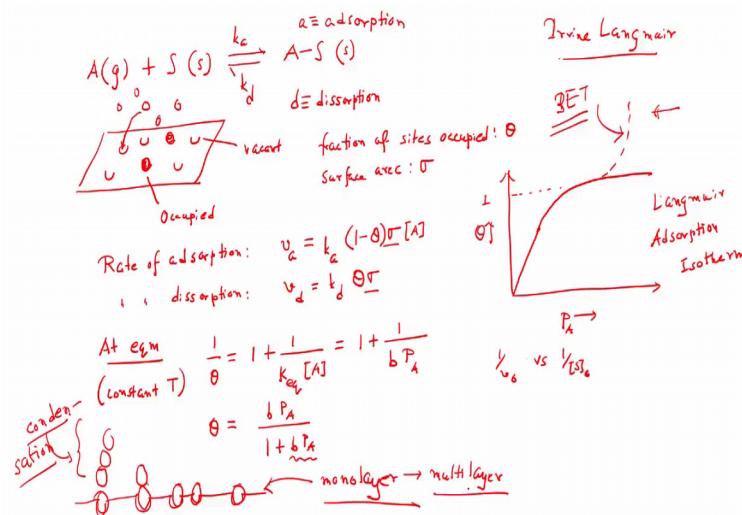 a ≡ adsorption
A(g) + S (s) ⇌ A–S (s)
kₐ
k_d
d ≡ dissorption
Irvine Langmair
BET
vacant
fraction of sites occupied : θ
surface area : σ
Occupied
1
θ↑
P_A →
Langmair
Adsorption
Isotherm
Rate of adsorption: vₐ = kₐ (1-θ)σ [A]
‚ ‚ dissorption: v_d = k_d θσ
At eqm
(constant T)
1/θ = 1 + 1/(K_eq [A]) = 1 + 1/(b P_A)
1/v₀ vs 1/[S]₀
θ = b P_A / (1 + b P_A)
conden-
sation
monolayer → multilayer